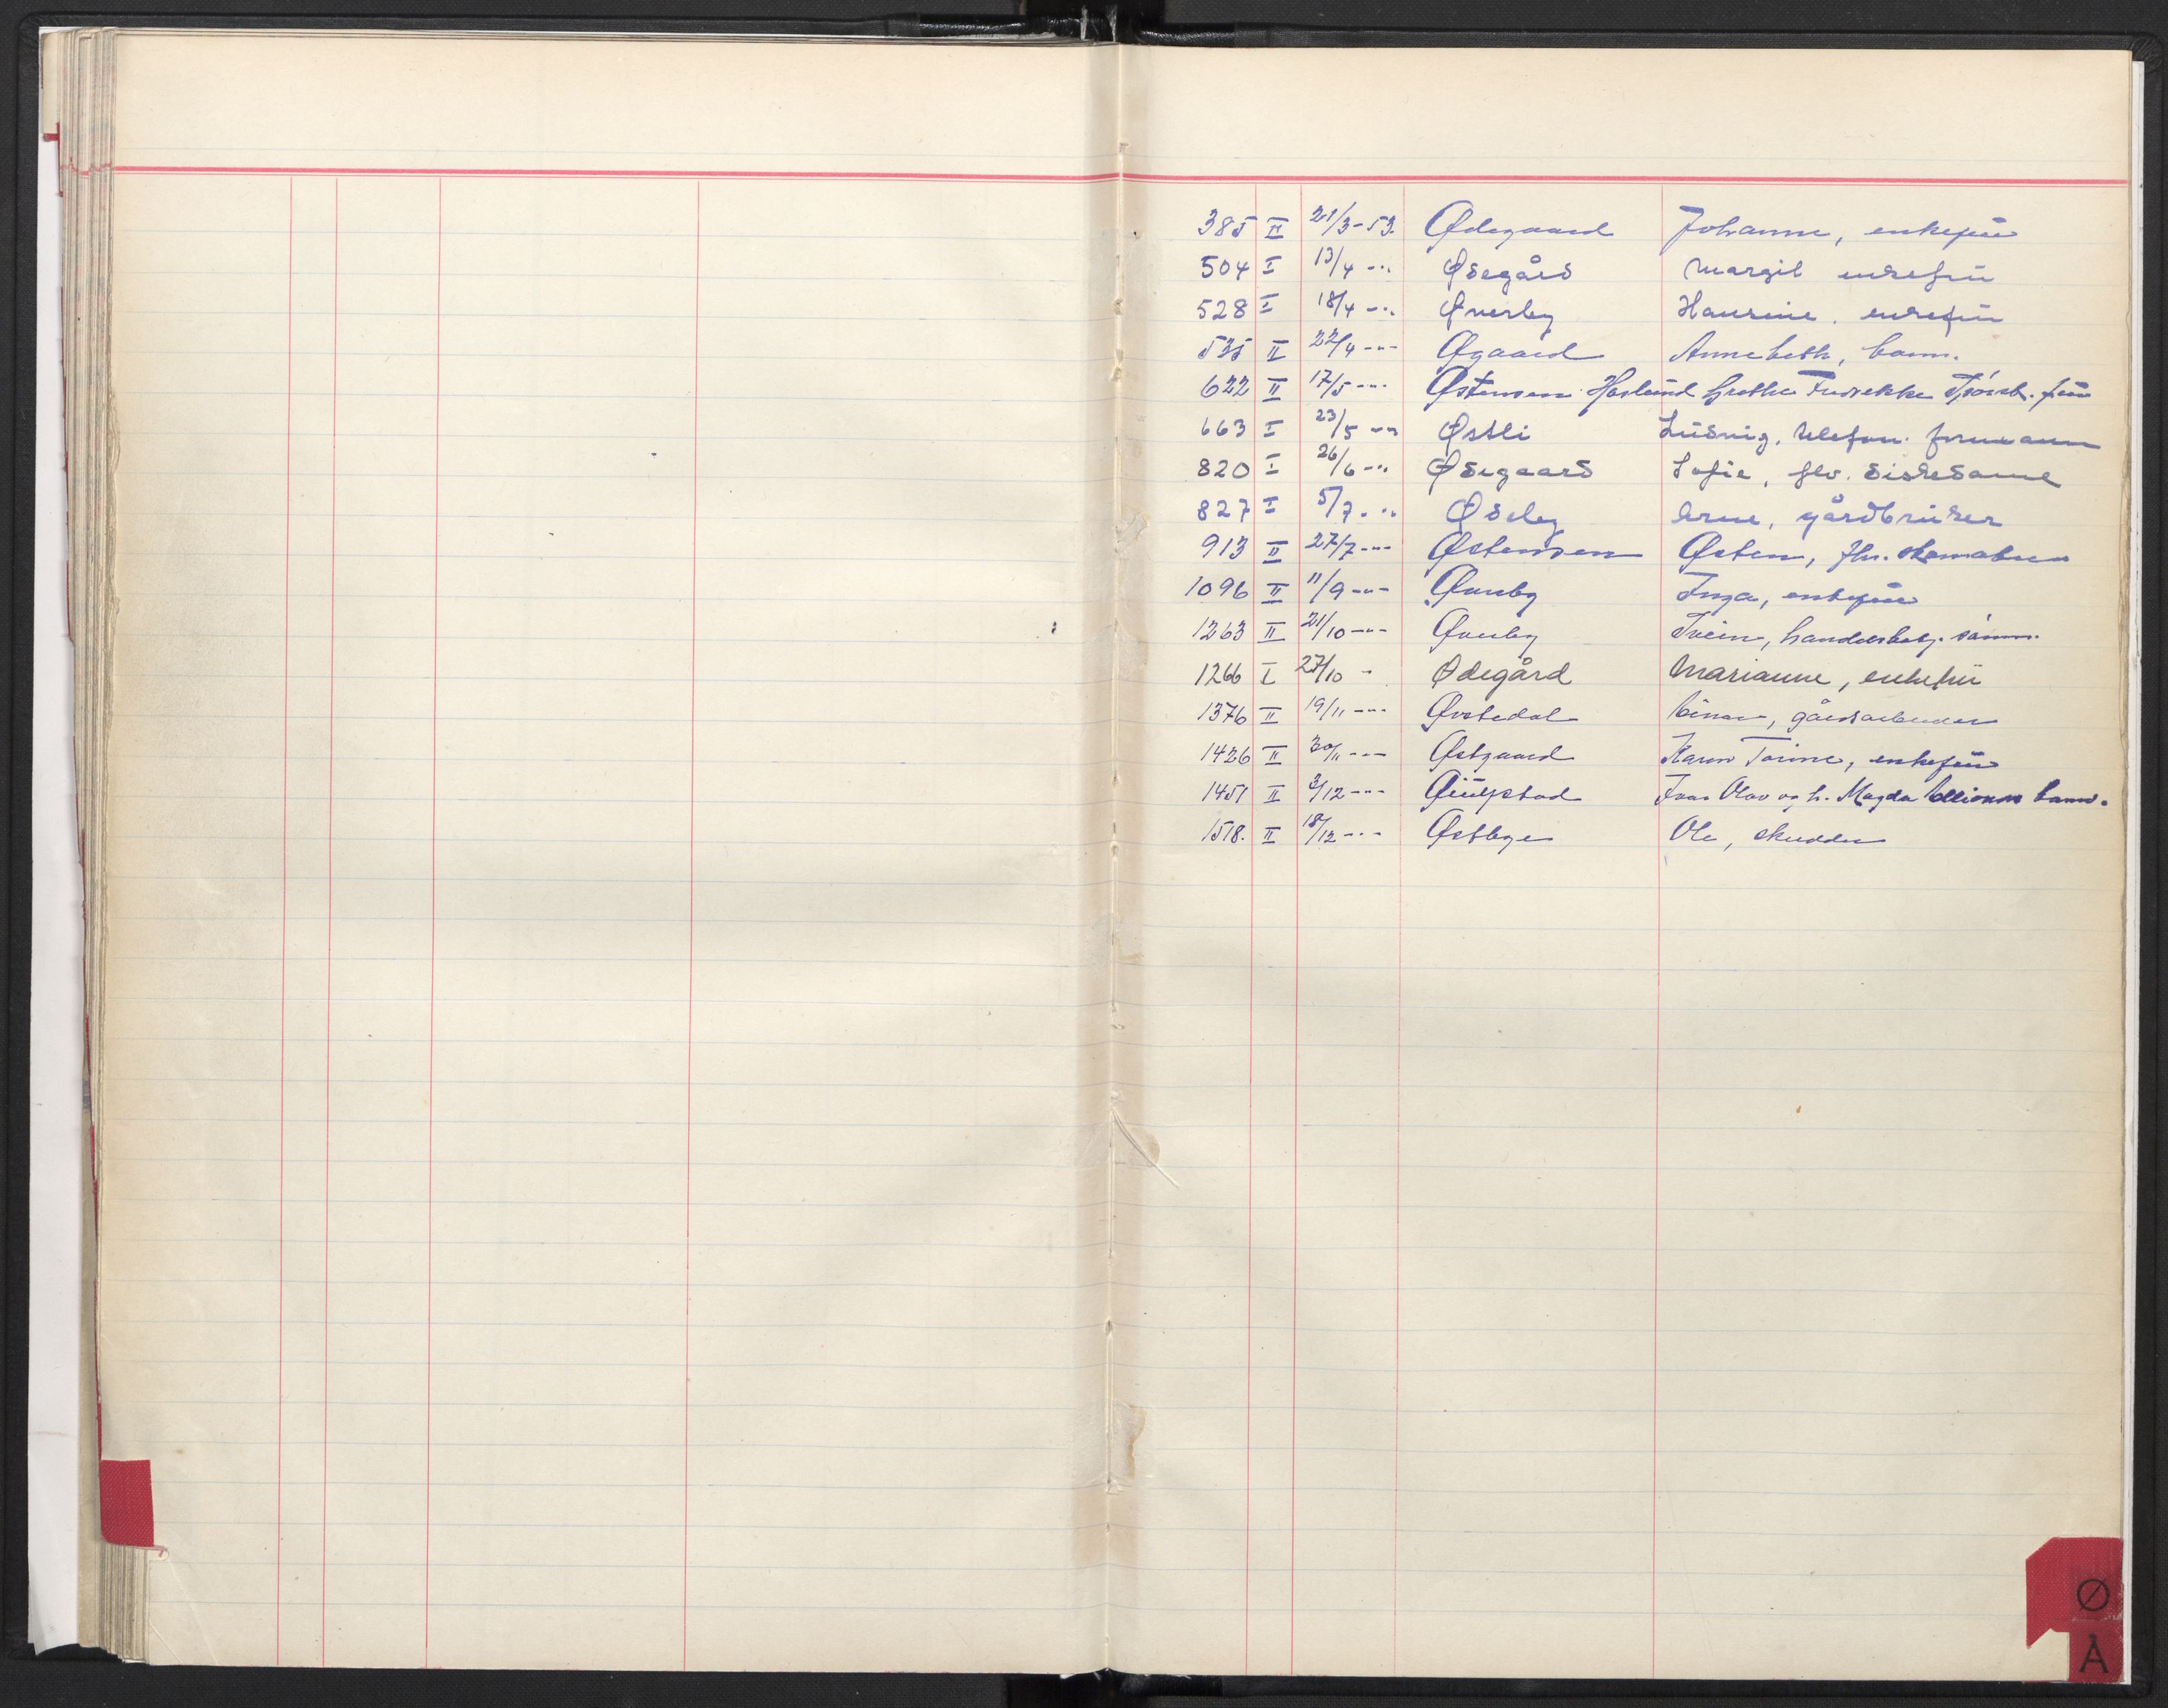 385 II 21/3-53. Ødegaard Johanne, enkefru
504 I 13/4 -"- Ødegård Margit enkefru
528 I 18/4 -"- Øverby Hansine, enkefru
535 II 22/4 -"- Øgaard Annebeth, barn.
622 II 17/5 -"- Østensen Haslund Grethe Fredrekke frue
663 I 23/5 -"- Østli Ludvig, telefon. formann
820 I 26/6 -"- Ødegaard Sofie, fhv. diskedame
827 I 5/7 -"- Ødeby Arne, gårdbruker
913 II 27/7 -"- Østensen Østen, fhv. skomaker
1096 II 11/9 -"- Øverby Inga, enkefrue
1263 II 21/10 -"- Øverby Svein, handelsbetj.
1266 I 27/10 - Ødegård Marianne, enkefru
1376 II 19/11 -"- Øvstedal Einar, gårdsarbeider
1426 II 30/11 -"- Østgaard Karen Torine, enkefrue
1451 II 3/12 -"- Ivar Olav og h. Magda
1518. II 18/12 -"- Østbye Ole, skredder
Ø
Å